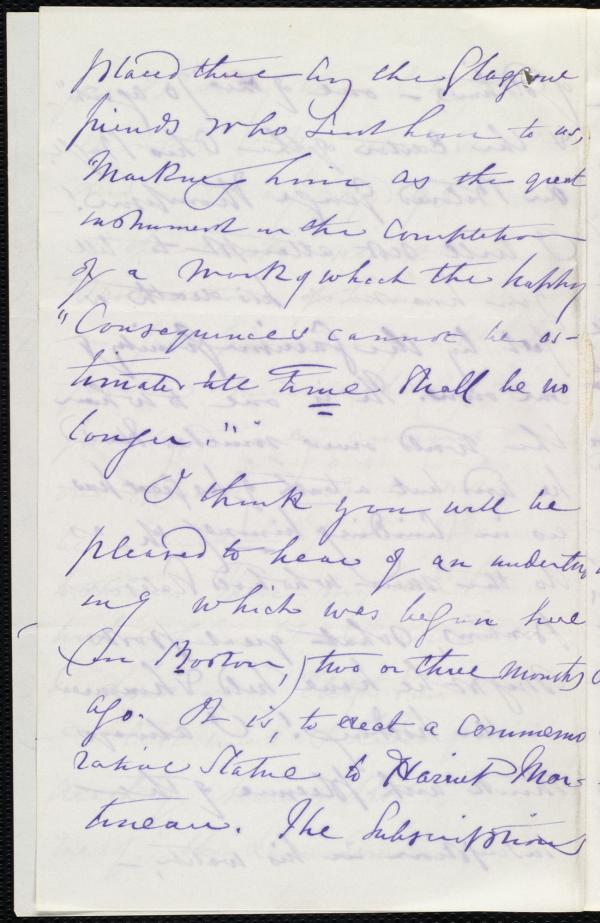 placed there by the Glasgow
friends who sent him to us,
Marking him as the great
instrument in the completion
of a work of which the happy
"Consequences cannot be es-
timated till time shall be no
longer."
I think you will be
pleased to hear of an undertak
ing which was begun here
(in Boston,) two or three months
ago. It is, to erect a commemo
rative Statue to Harriet Mar-
tineau. The Subscriptions